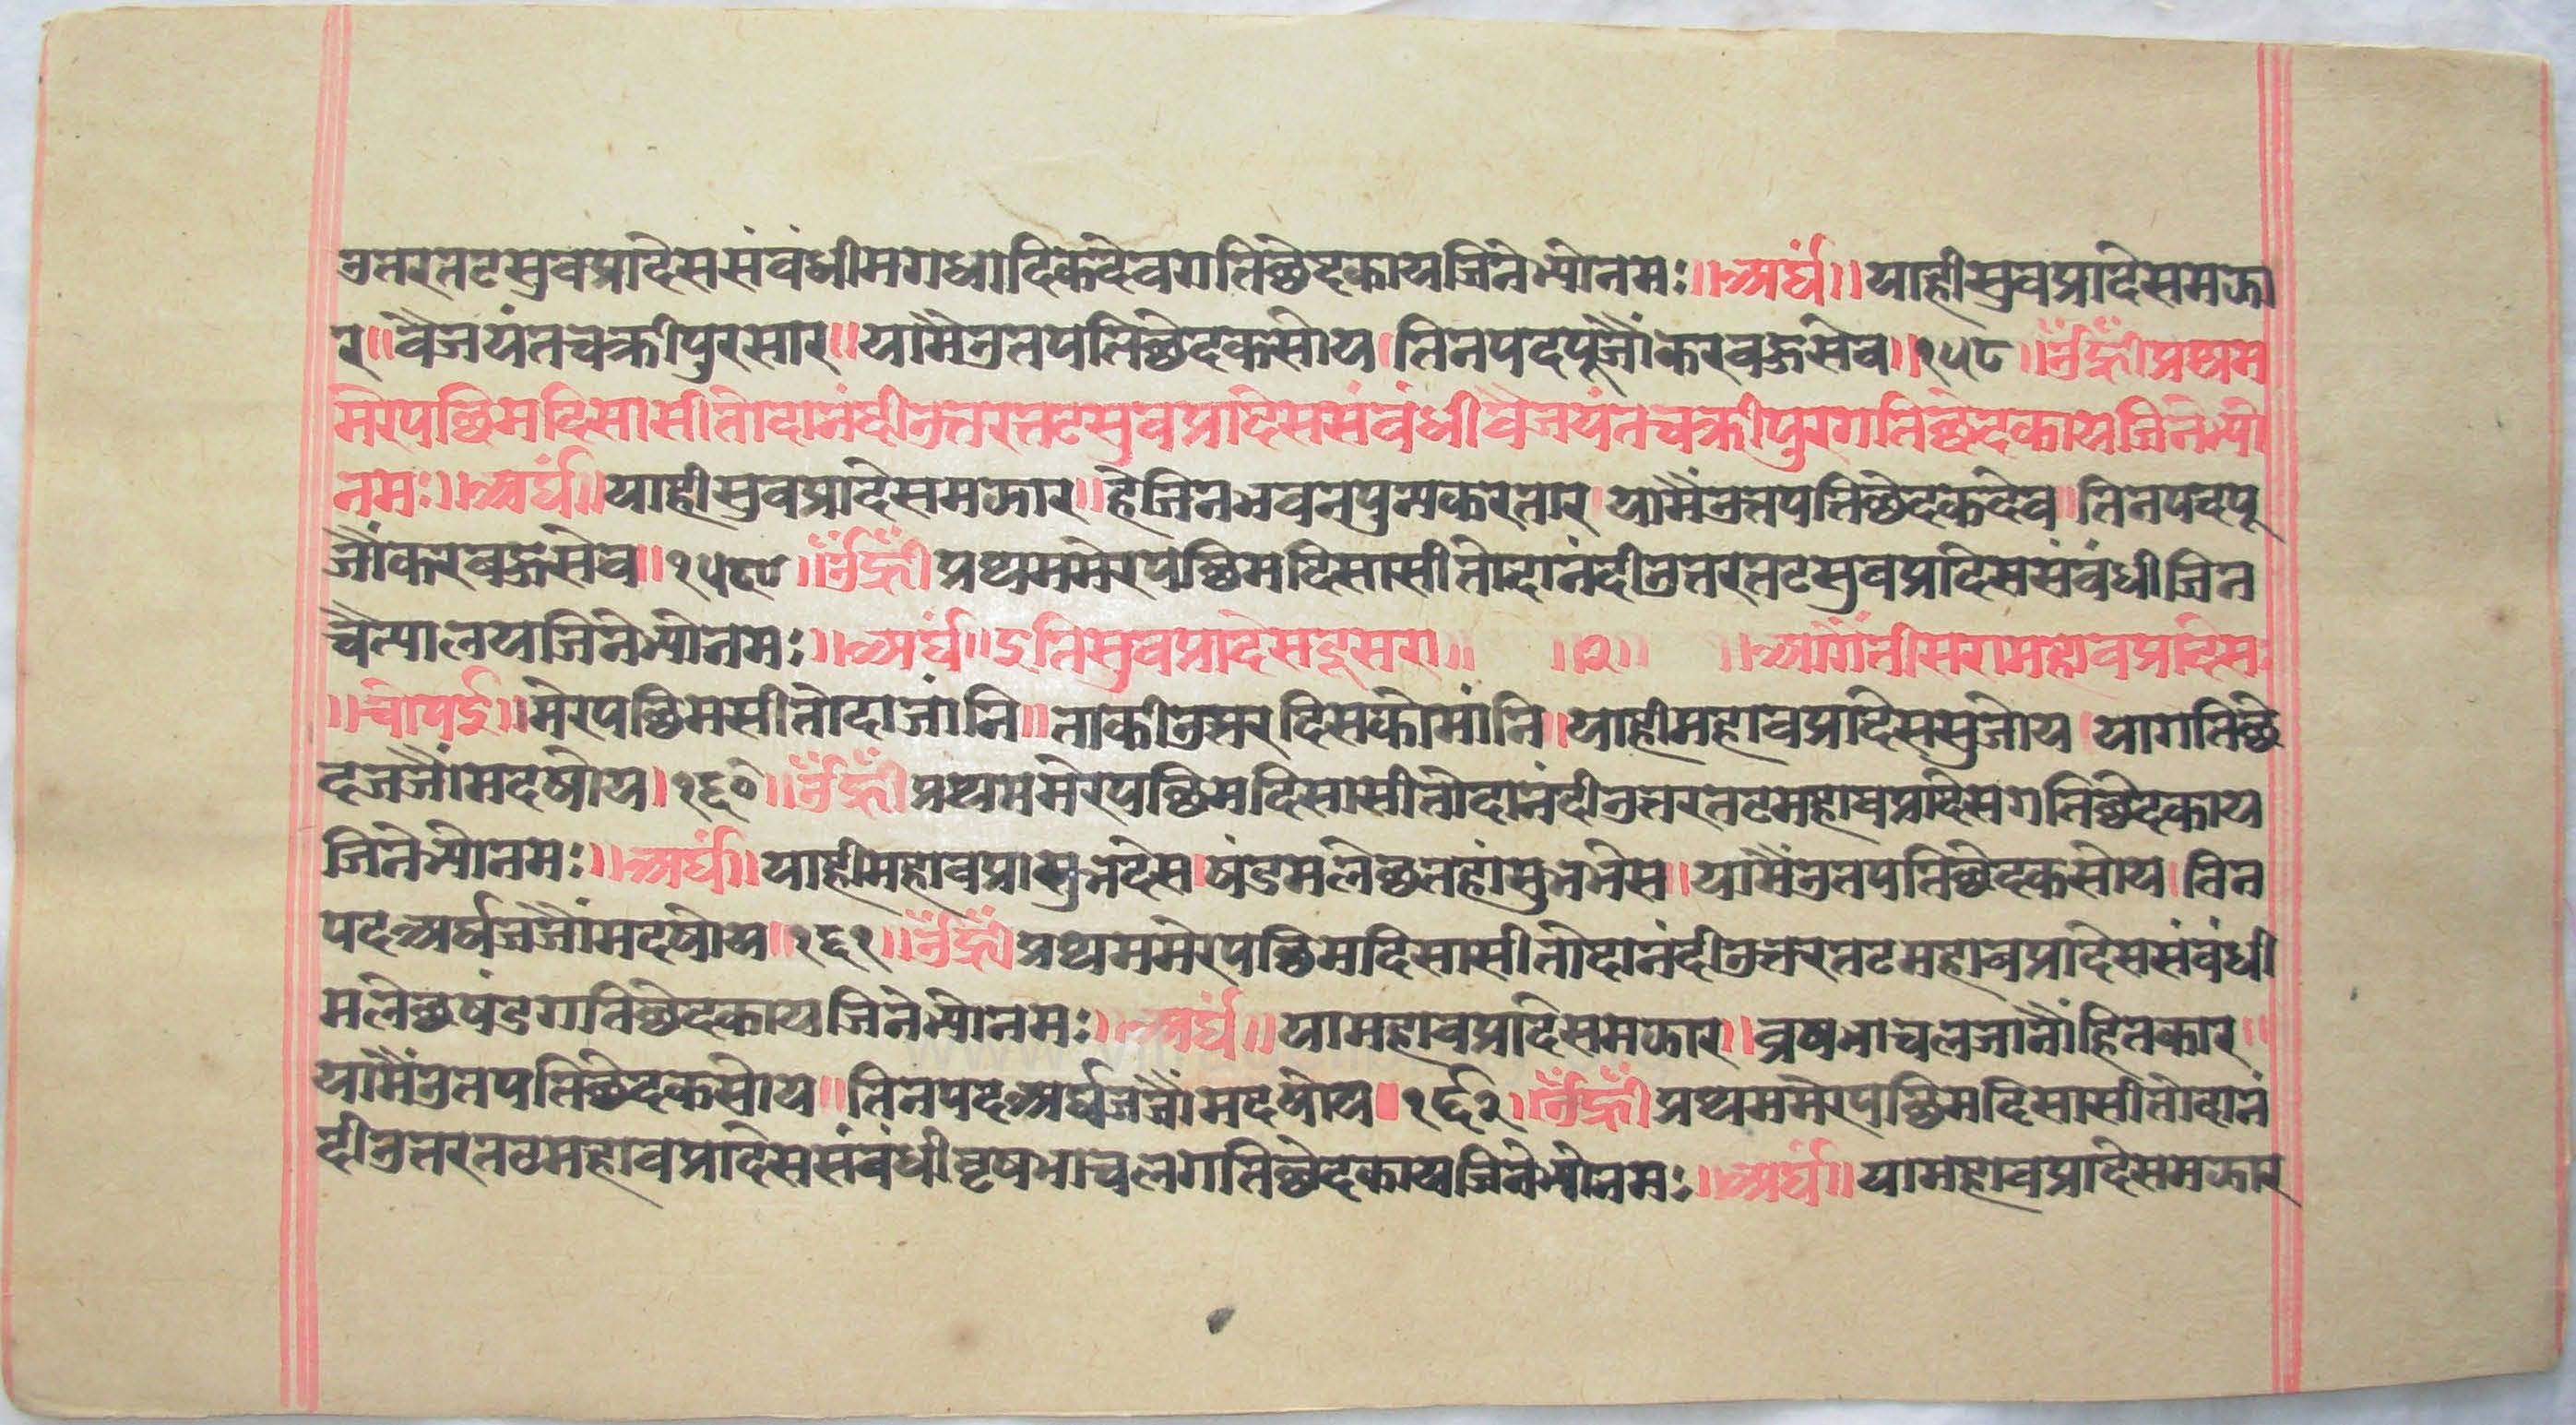 उत्तरतटसुवप्रादेससंबंधीमगधादिकदेवगतिछेदकायजिनेभ्योनमः॥अर्घं॥याहीसुवप्रादेसमझा
र॥वैजयंतचक्रीपुरसार॥यामैउतपतिछेदकसोय॥तिनपदपूजौंकरबहुसेव॥१५८॥ॐह्रीप्रथम
मेरपछिमदिसासीतोदानंदीउत्तरतटसुवप्रादेससंबंधीवैजयंतचक्रीपुरगतिछेदकायजिनेभ्यो
नमः॥अर्घं॥याहीसुवप्रादेसमझार॥हेजिनभवनपुन्यकरतार॥यामैंउतपतिछेदकदेव॥तिनपदपू
जौंकरबहुसेव॥१५९॥ॐह्रीप्रथममेरपछिमदिसासीतोदानंदीउत्तरतटसुवप्रादेससंबंधीजिन
चैत्यालयजिनेभ्योनमः॥अर्घं॥इतिसुवप्रादेसदूसरा॥ ॥२॥ ॥आगैंतीसरामहावप्रादेस॥
॥चौपई॥मेरपछिमसीतोदाजांनि॥ताकीउत्तरदिसकोमांनि॥याहीमहावप्रादेससुजोय॥यागतिछे
दजजौंमदषोय॥१६०॥ॐह्रीप्रथममेरपछिमदिसासीतोदानंदीउत्तरतटमहावप्रादेसगतिछेदकाय
जिनेभ्योनमः॥अर्घं॥याहीमहावप्रासुनदेस॥षंडमलेछतहांसुनभेस॥यामैंउतपतिछेदकसोय॥तिन
पदअर्घजजौंमदषोय॥१६१॥ॐह्रीप्रथममेरपछिमदिसासीतोदानंदीउत्तरतटमहावप्रादेससंबंधी
मलेछषंडगतिछेदकायजिनेभ्योनमः॥अर्घं॥यामहावप्रादेसमझार॥व्रषभाचलजानौंहितकार॥
यामैंउतपतिछेदकसोय॥तिनपदअर्घजजौंमदषोय॥१६२॥ॐह्रीप्रथममेरपछिमदिसासीतोदानं
दीउत्तरतटमहावप्रादेससंबंधीवृषभाचलगतिछेदकायजिनेभ्योनमः॥अर्घं॥यामहावप्रादेसमझार